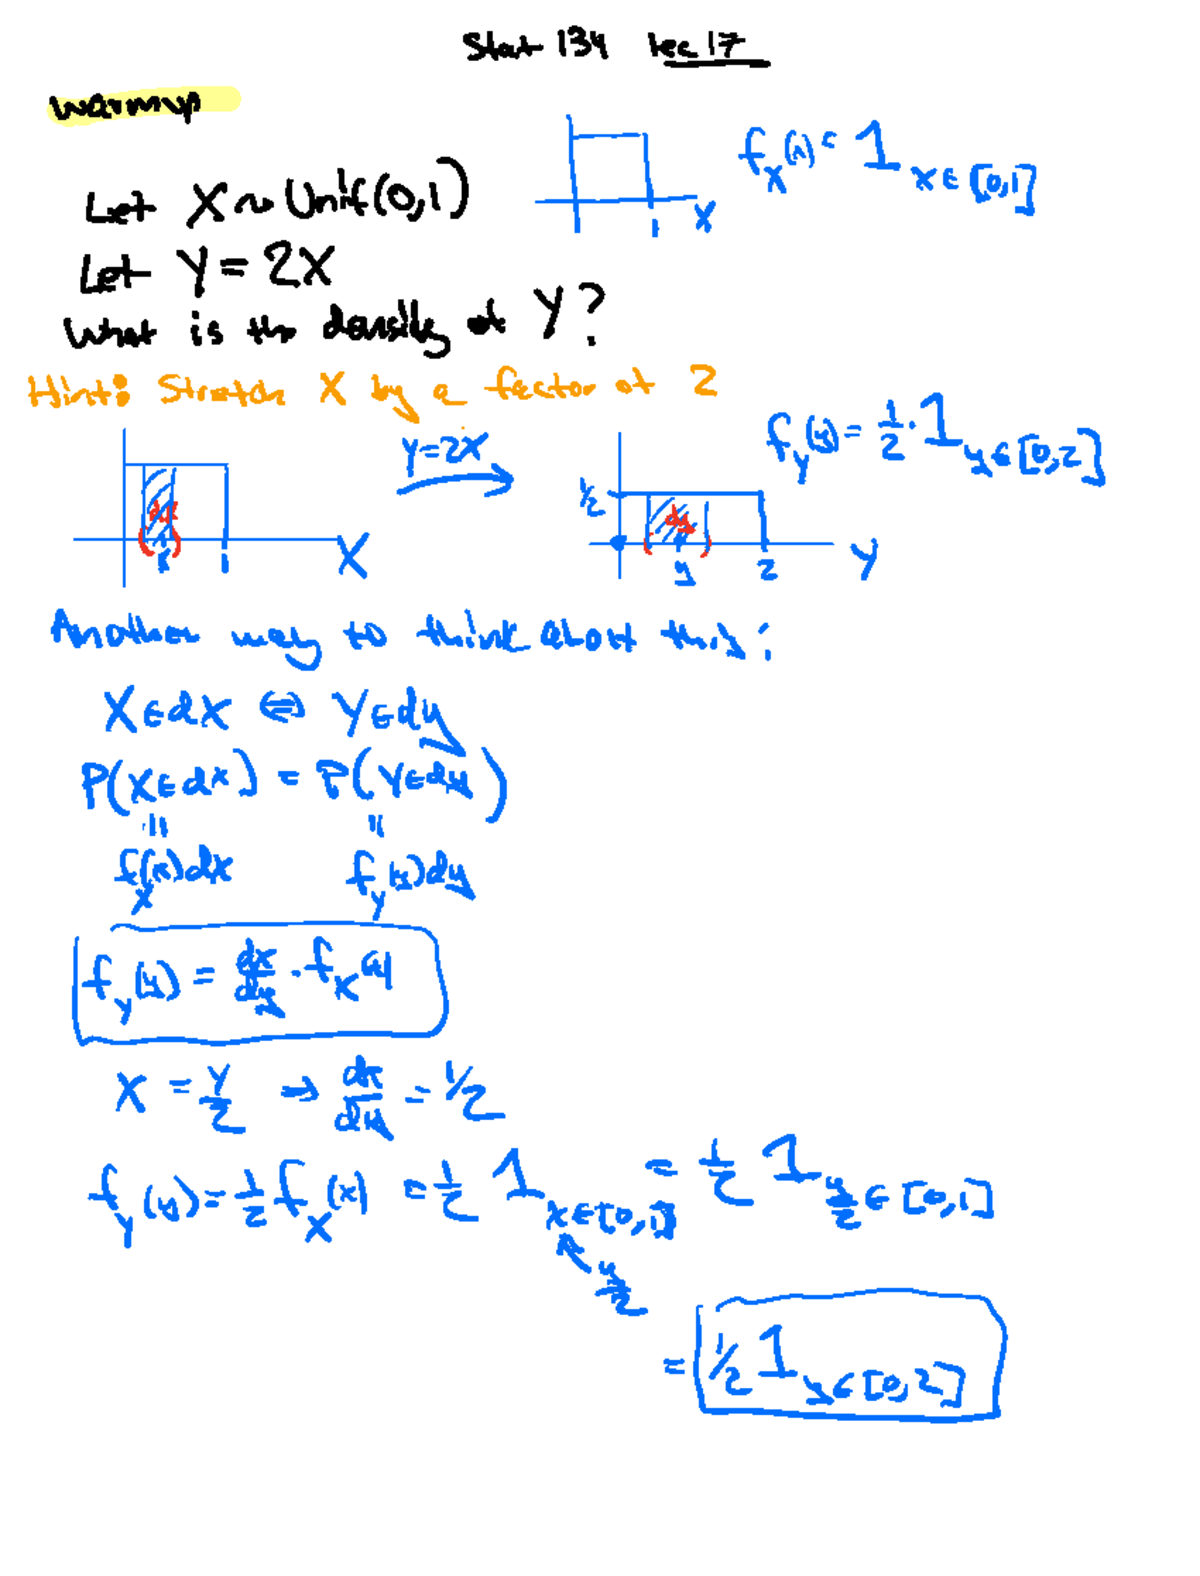 Stat 134 lec 17
warmup
Let X ~ Unif(0,1)
1 X
f_X(x) = 1_{x ∈ [0,1]}
Let Y = 2X
What is the density of Y?
Hint: Stretch X by a factor of 2
dx
x 1 X
Y=2X
1/2
dy
y 2 Y
f_Y(y) = 1/2 · 1_{y ∈ [0,2]}
Another way to think about this:
X ∈ dx ⇔ Y ∈ dy
P(X ∈ dx) = P(Y ∈ dy)
= =
f_X(x)dx f_Y(y)dy
f_Y(y) = dx/dy · f_X(x)
X = Y/2 → dx/dy = 1/2
f_Y(y) = 1/2 f_X(x) = 1/2 1_{x ∈ [0,1]} = 1/2 1_{y/2 ∈ [0,1]}
y/2
= 1/2 1_{y ∈ [0,2]}